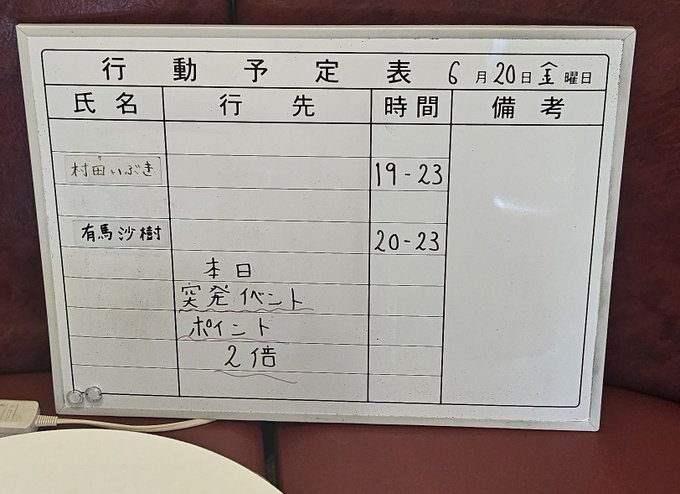 行動予定表 6月20日金曜日
氏名 行先 時間 備考
村田いぶき 19-23
有馬沙樹 20-23
本日
突発イベント
ポイント
2倍